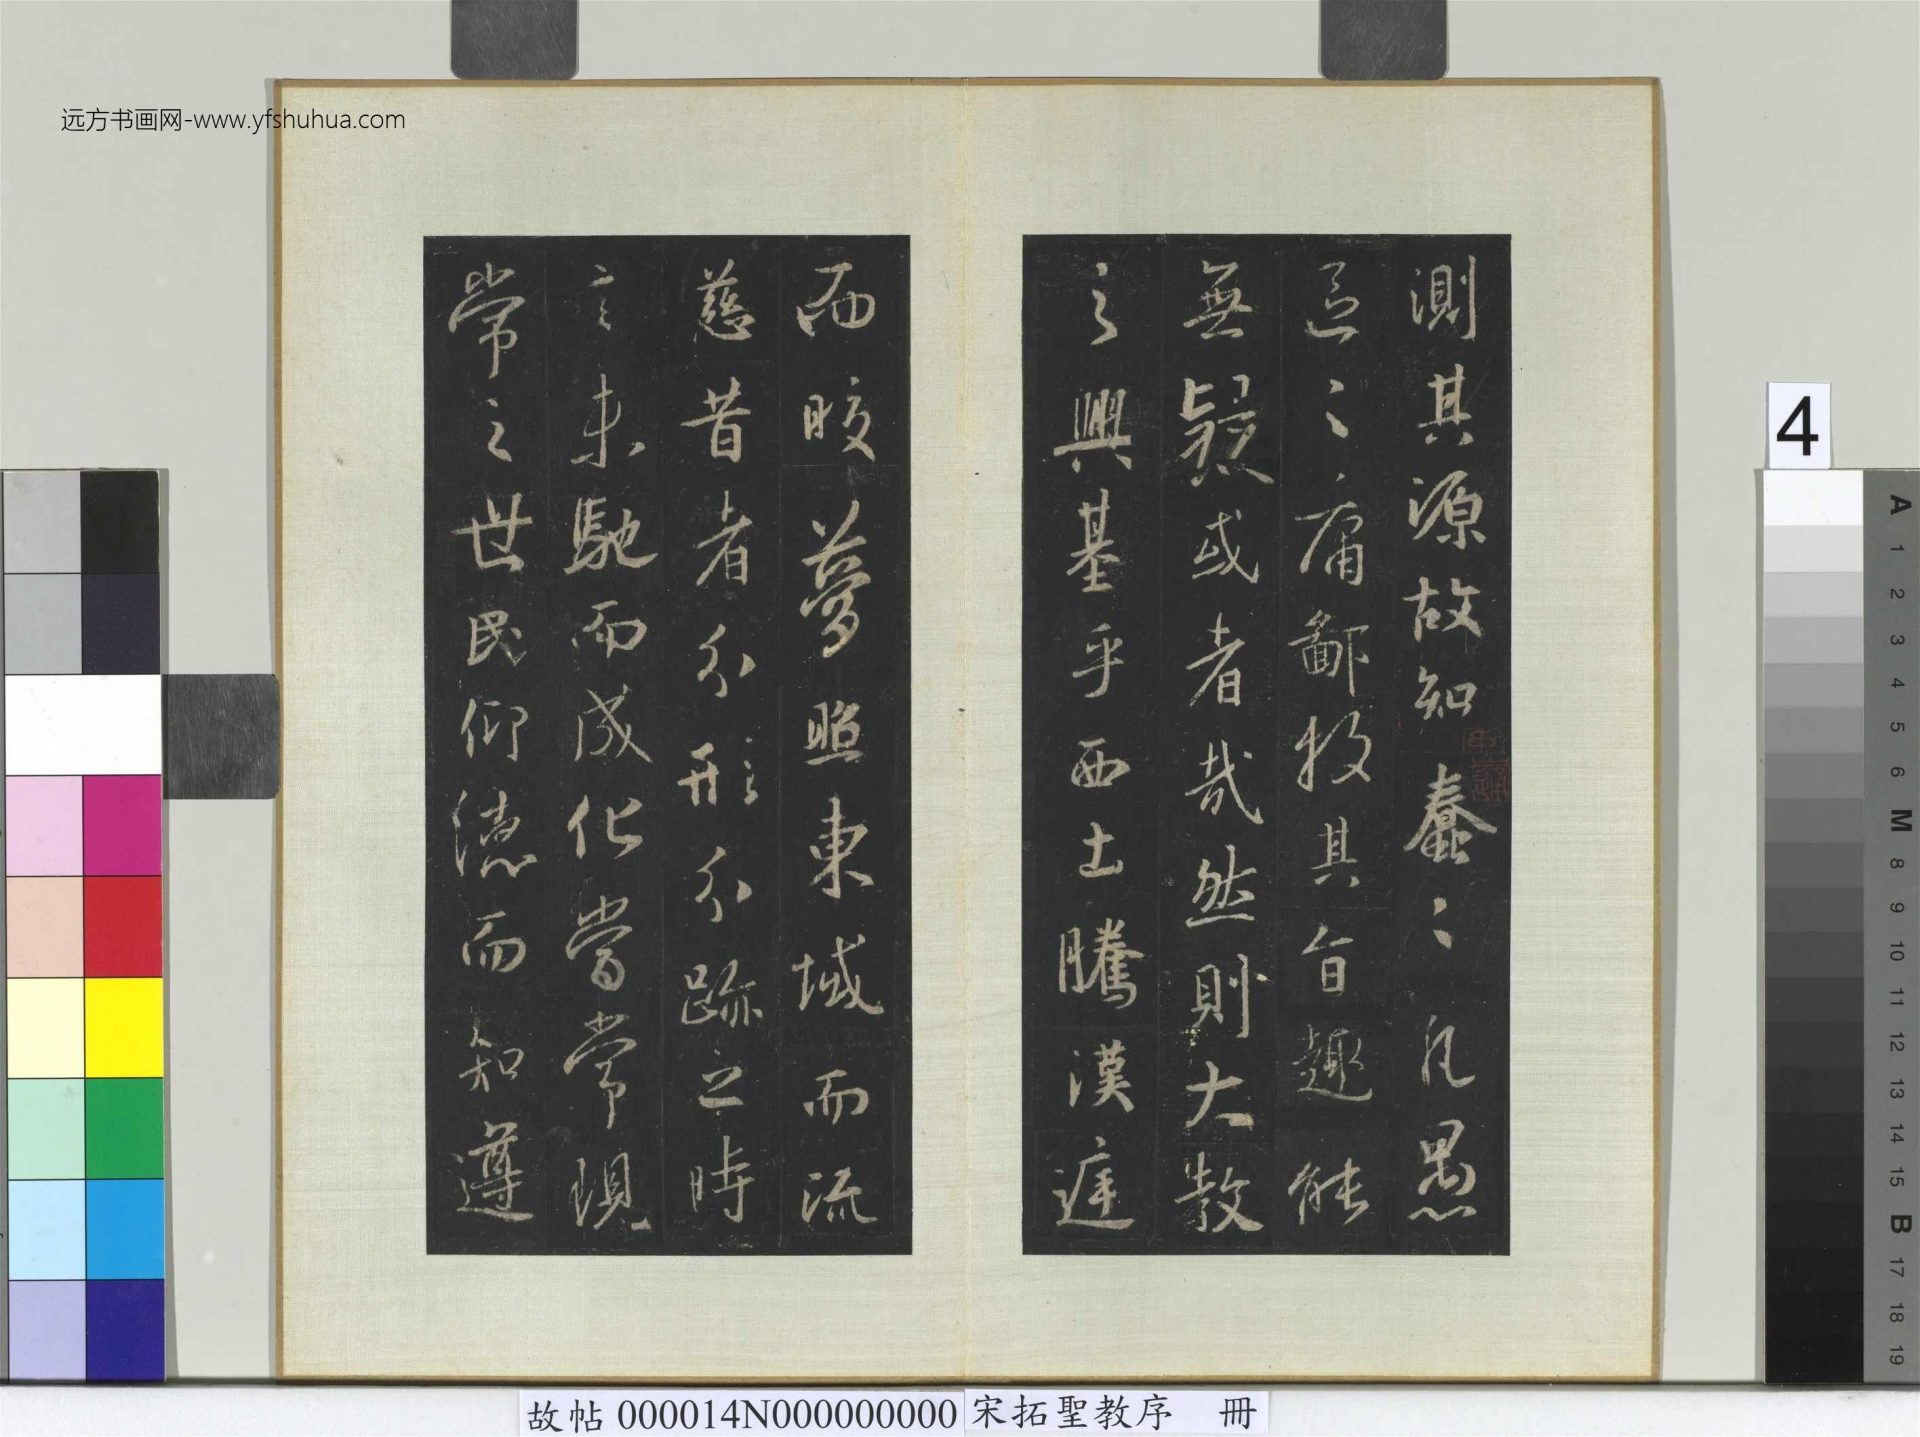 远方书画网-www.yfshuhua.com
測其源故知蠢〻凡愚
區〻庸鄙投其旨趣能
無疑或者哉然則大教
之興基乎西土騰漢庭
而晈夢照東域而流
慈昔者分形分跡之時
言未馳而成化當常現
常之世民仰德而知遵
4
A
1
2
3
4
5
6
M
8
9
10
11
12
13
14
15
B
17
18
19
故帖 000014N000000000 宋拓聖教序 冊